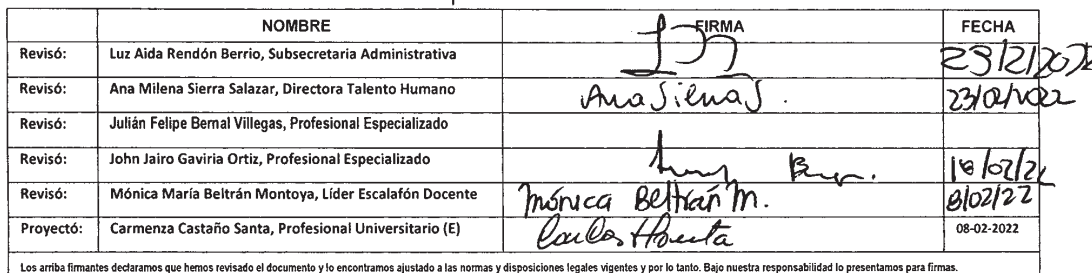 NOMBRE FIRMA FECHA
Revisó: Luz Aida Rendón Berrio, Subsecretaria Administrativa 23/2/2022
Revisó: Ana Milena Sierra Salazar, Directora Talento Humano Ana Sierra S. 23/02/2022
Revisó: Julián Felipe Bernal Villegas, Profesional Especializado
Revisó: John Jairo Gaviria Ortiz, Profesional Especializado 18/02/22
Revisó: Mónica María Beltrán Montoya, Líder Escalafón Docente Mónica Beltrán M. 8/02/22
Proyectó: Carmenza Castaño Santa, Profesional Universitario (E) 08-02-2022
Los arriba firmantes declaramos que hemos revisado el documento y lo encontramos ajustado a las normas y disposiciones legales vigentes y por lo tanto. Bajo nuestra responsabilidad lo presentamos para firmas.